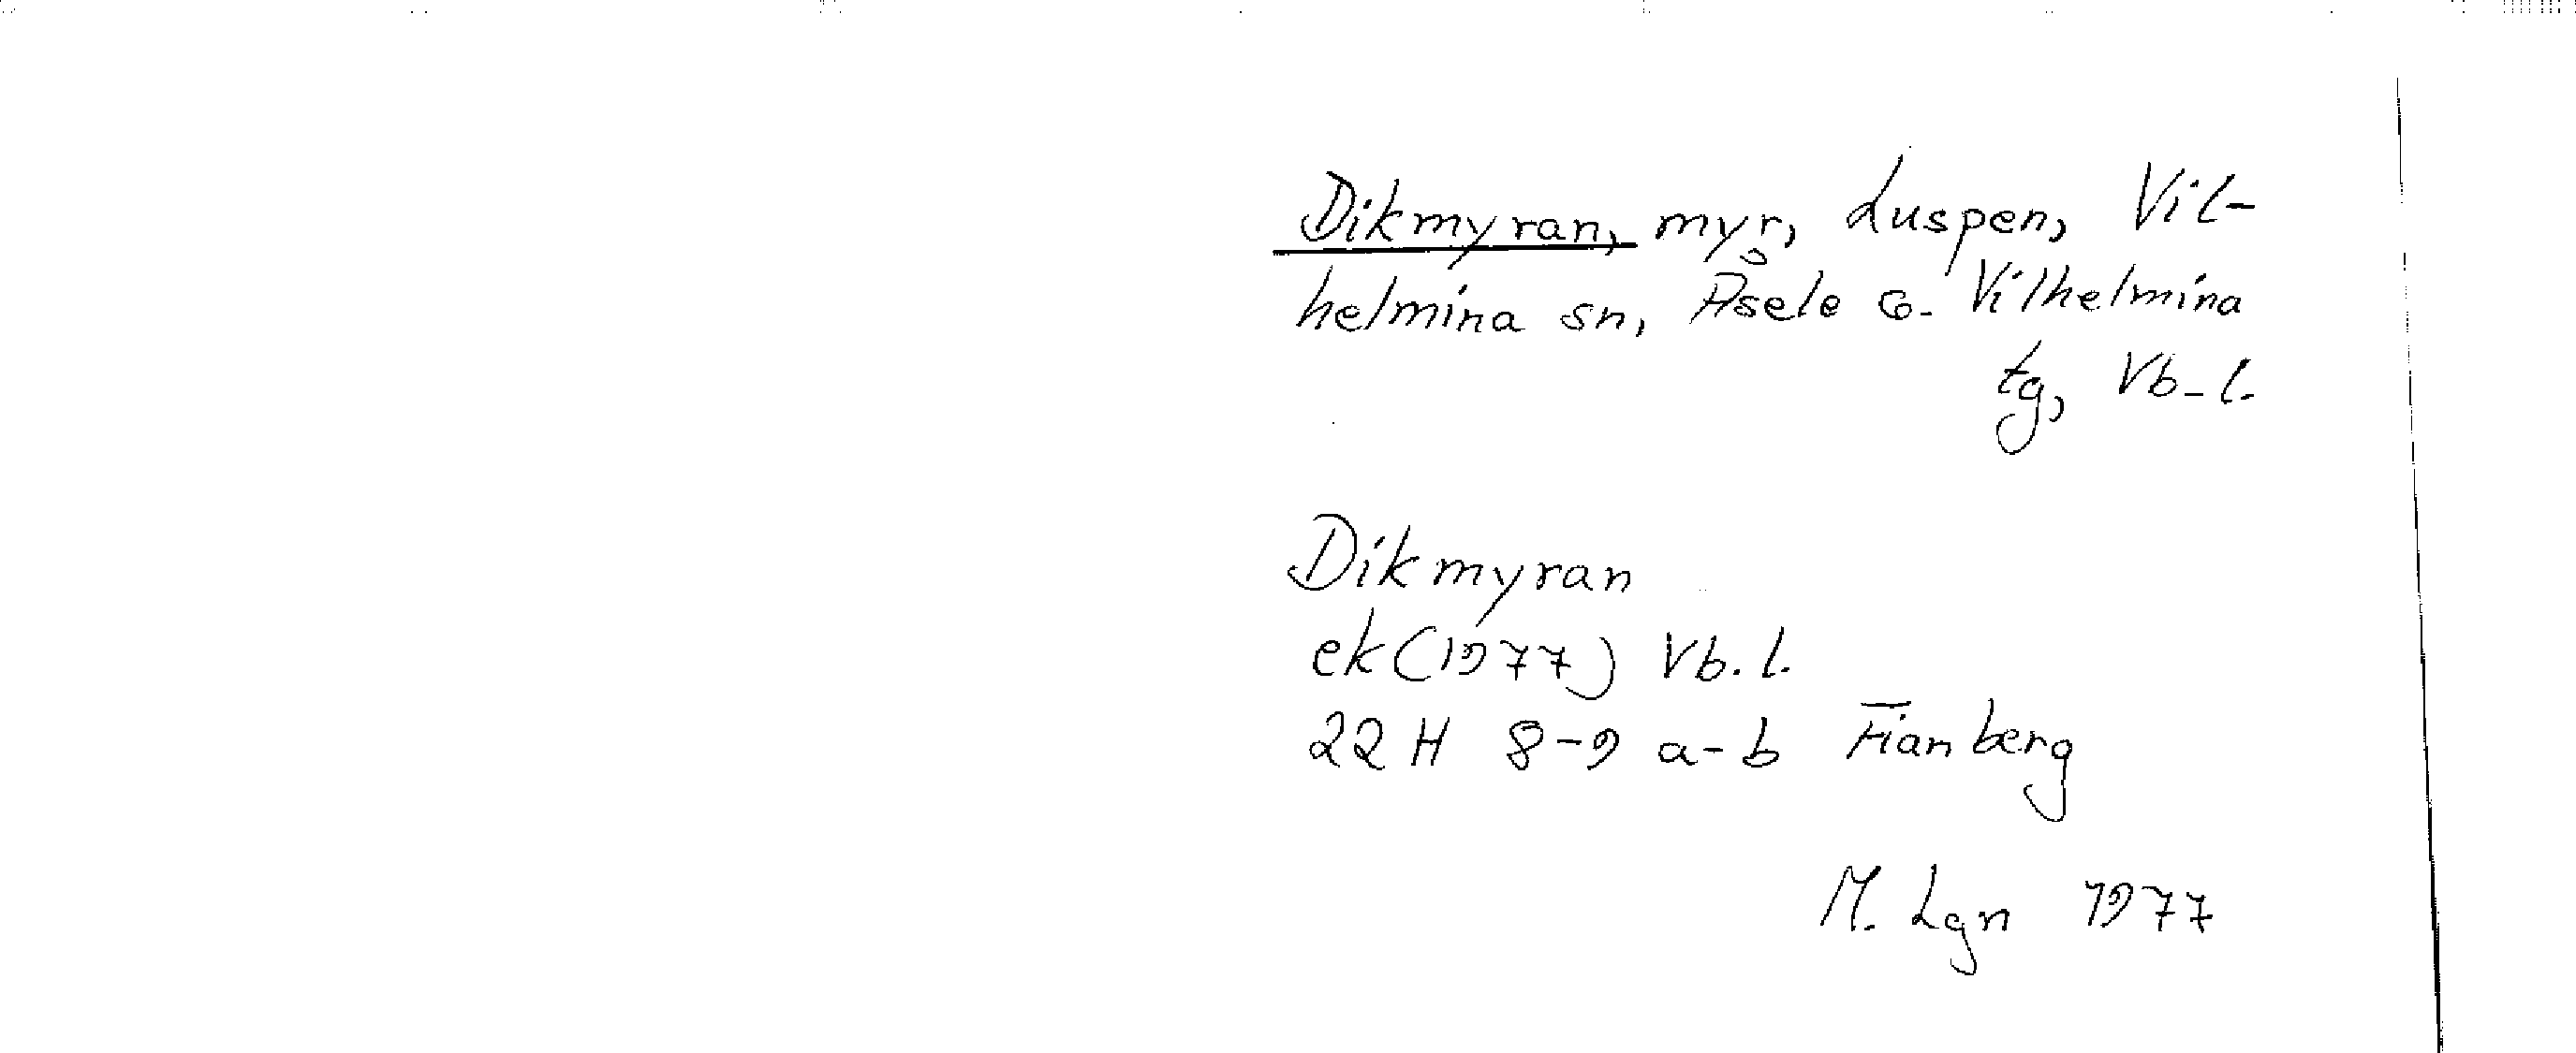 Dikmyran, myr, Luspen, Vil-
helmina sn, Åsele o. Vilhelmina
tg, Vb. l.
Dikmyran
ek (1977) Vb. l.
22 H 8-9 a-b Fianberg
M. Lgn 1977